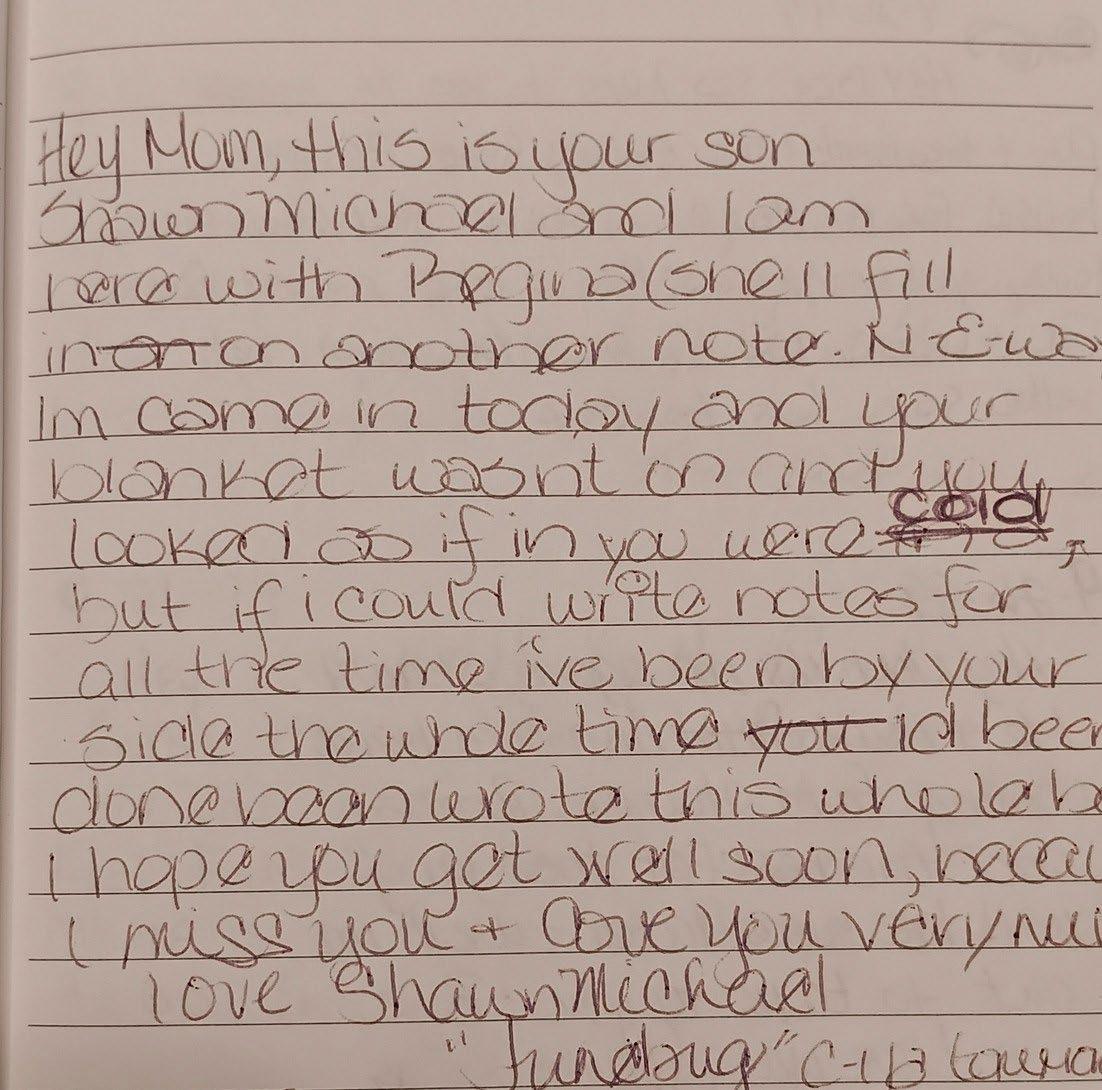 Hey Mom, this is your son
Shawn Michael and I am
here with Regina (shell fill
in on on another note. N-E-wa
Im came in today and your
blanket wasnt on and you
looked as if in you were cold,
but if i could write notes for
all the time ive been by your
side the whole time you Id been
done been wrote this whole b
I hope you get well soon, becau
I miss you + love you very mu
love Shawn Michael
"